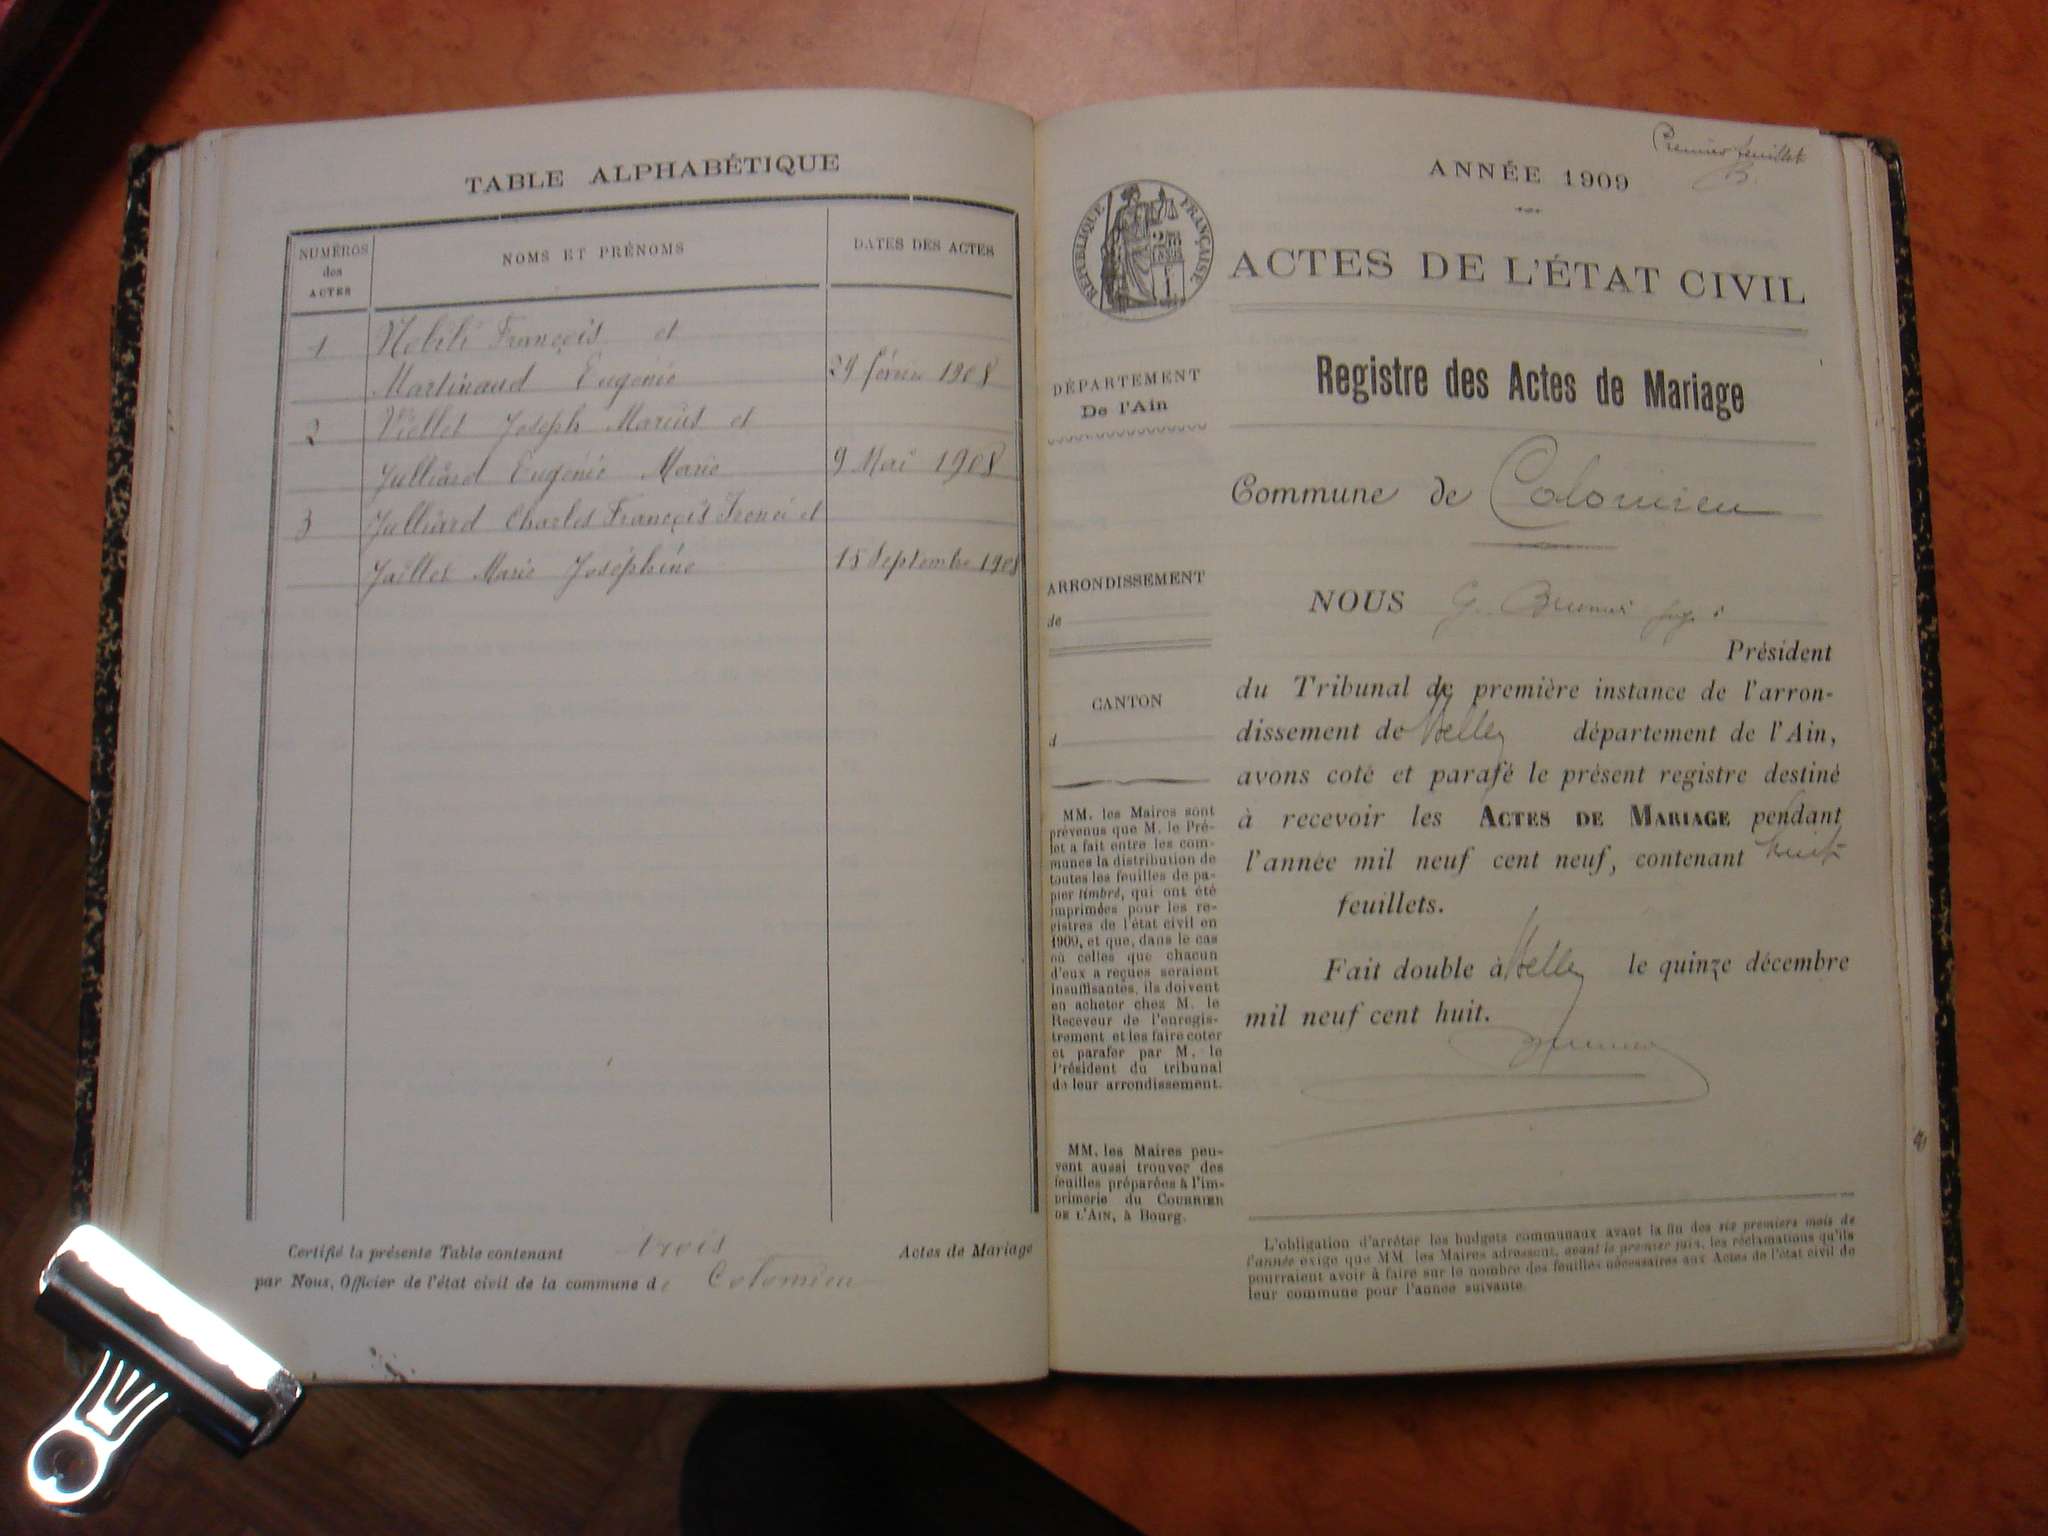 TABLE ALPHABÉTIQUE
NUMÉROS des ACTES
NOMS ET PRÉNOMS
DATES DES ACTES
1 François et
Martinaud Eugénie 29 février 1908
2 Viollet Joseph Marius et
Julliard Eugénie Marie 9 Mai 1908
3 Julliard Charles François et
Jaillet Marie Joséphine 15 Septembre 1908
Certifié la présente Table contenant trois Actes de Mariage
par Nous, Officier de l'état civil de la commune de Colomieu
Premier feuillet
B.
ANNÉE 1909
RÉPUBLIQUE FRANÇAISE
ACTES DE L'ÉTAT CIVIL
Registre des Actes de Mariage
DÉPARTEMENT
De l'Ain
Commune de Colomieu
ARRONDISSEMENT
de
CANTON
d
MM. les Maires sont
prévenus que M. le Pré-
fet a fait entre les com-
munes la distribution de
toutes les feuilles de pa-
pier timbré, qui ont été
imprimées pour les re-
gistres de l'état civil en
1909, et que, dans le cas
où celles que chacun
d'eux a reçues seraient
insuffisantes, ils doivent
en acheter chez M. le
Receveur de l'enregis-
trement et les faire coter
et parafer par M. le
Président du tribunal
de leur arrondissement.
MM. les Maires peu-
vent aussi trouver des
feuilles préparées à l'im-
primerie du COURRIER
DE L'AIN, à Bourg.
NOUS G.
Président
du Tribunal de première instance de l'arron-
dissement de Belley département de l'Ain,
avons coté et parafé le présent registre destiné
à recevoir les ACTES DE MARIAGE pendant
l'année mil neuf cent neuf, contenant huit
feuillets.
Fait double à Belley le quinze décembre
mil neuf cent huit.
L'obligation d'arrêter les budgets communaux avant la fin des six premiers mois de
l'année exige que MM. les Maires adressent, avant le premier juin, les réclamations qu'ils
pourraient avoir à faire sur le nombre des feuilles nécessaires aux Actes de l'état civil de
leur commune pour l'année suivante.